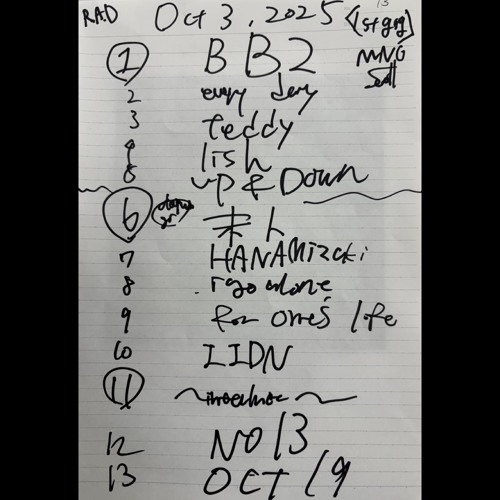 RAD Oct 3, 2025 (1st gig)
1 B B2 MNG Sell
2 every day
3 teddy
4 lish
5 UP & Down
6 末ト
7 HANAMIZUKI
8 I go alone
9 for one's life
10 IIDN
11
12 NO 13
13 OCT 19